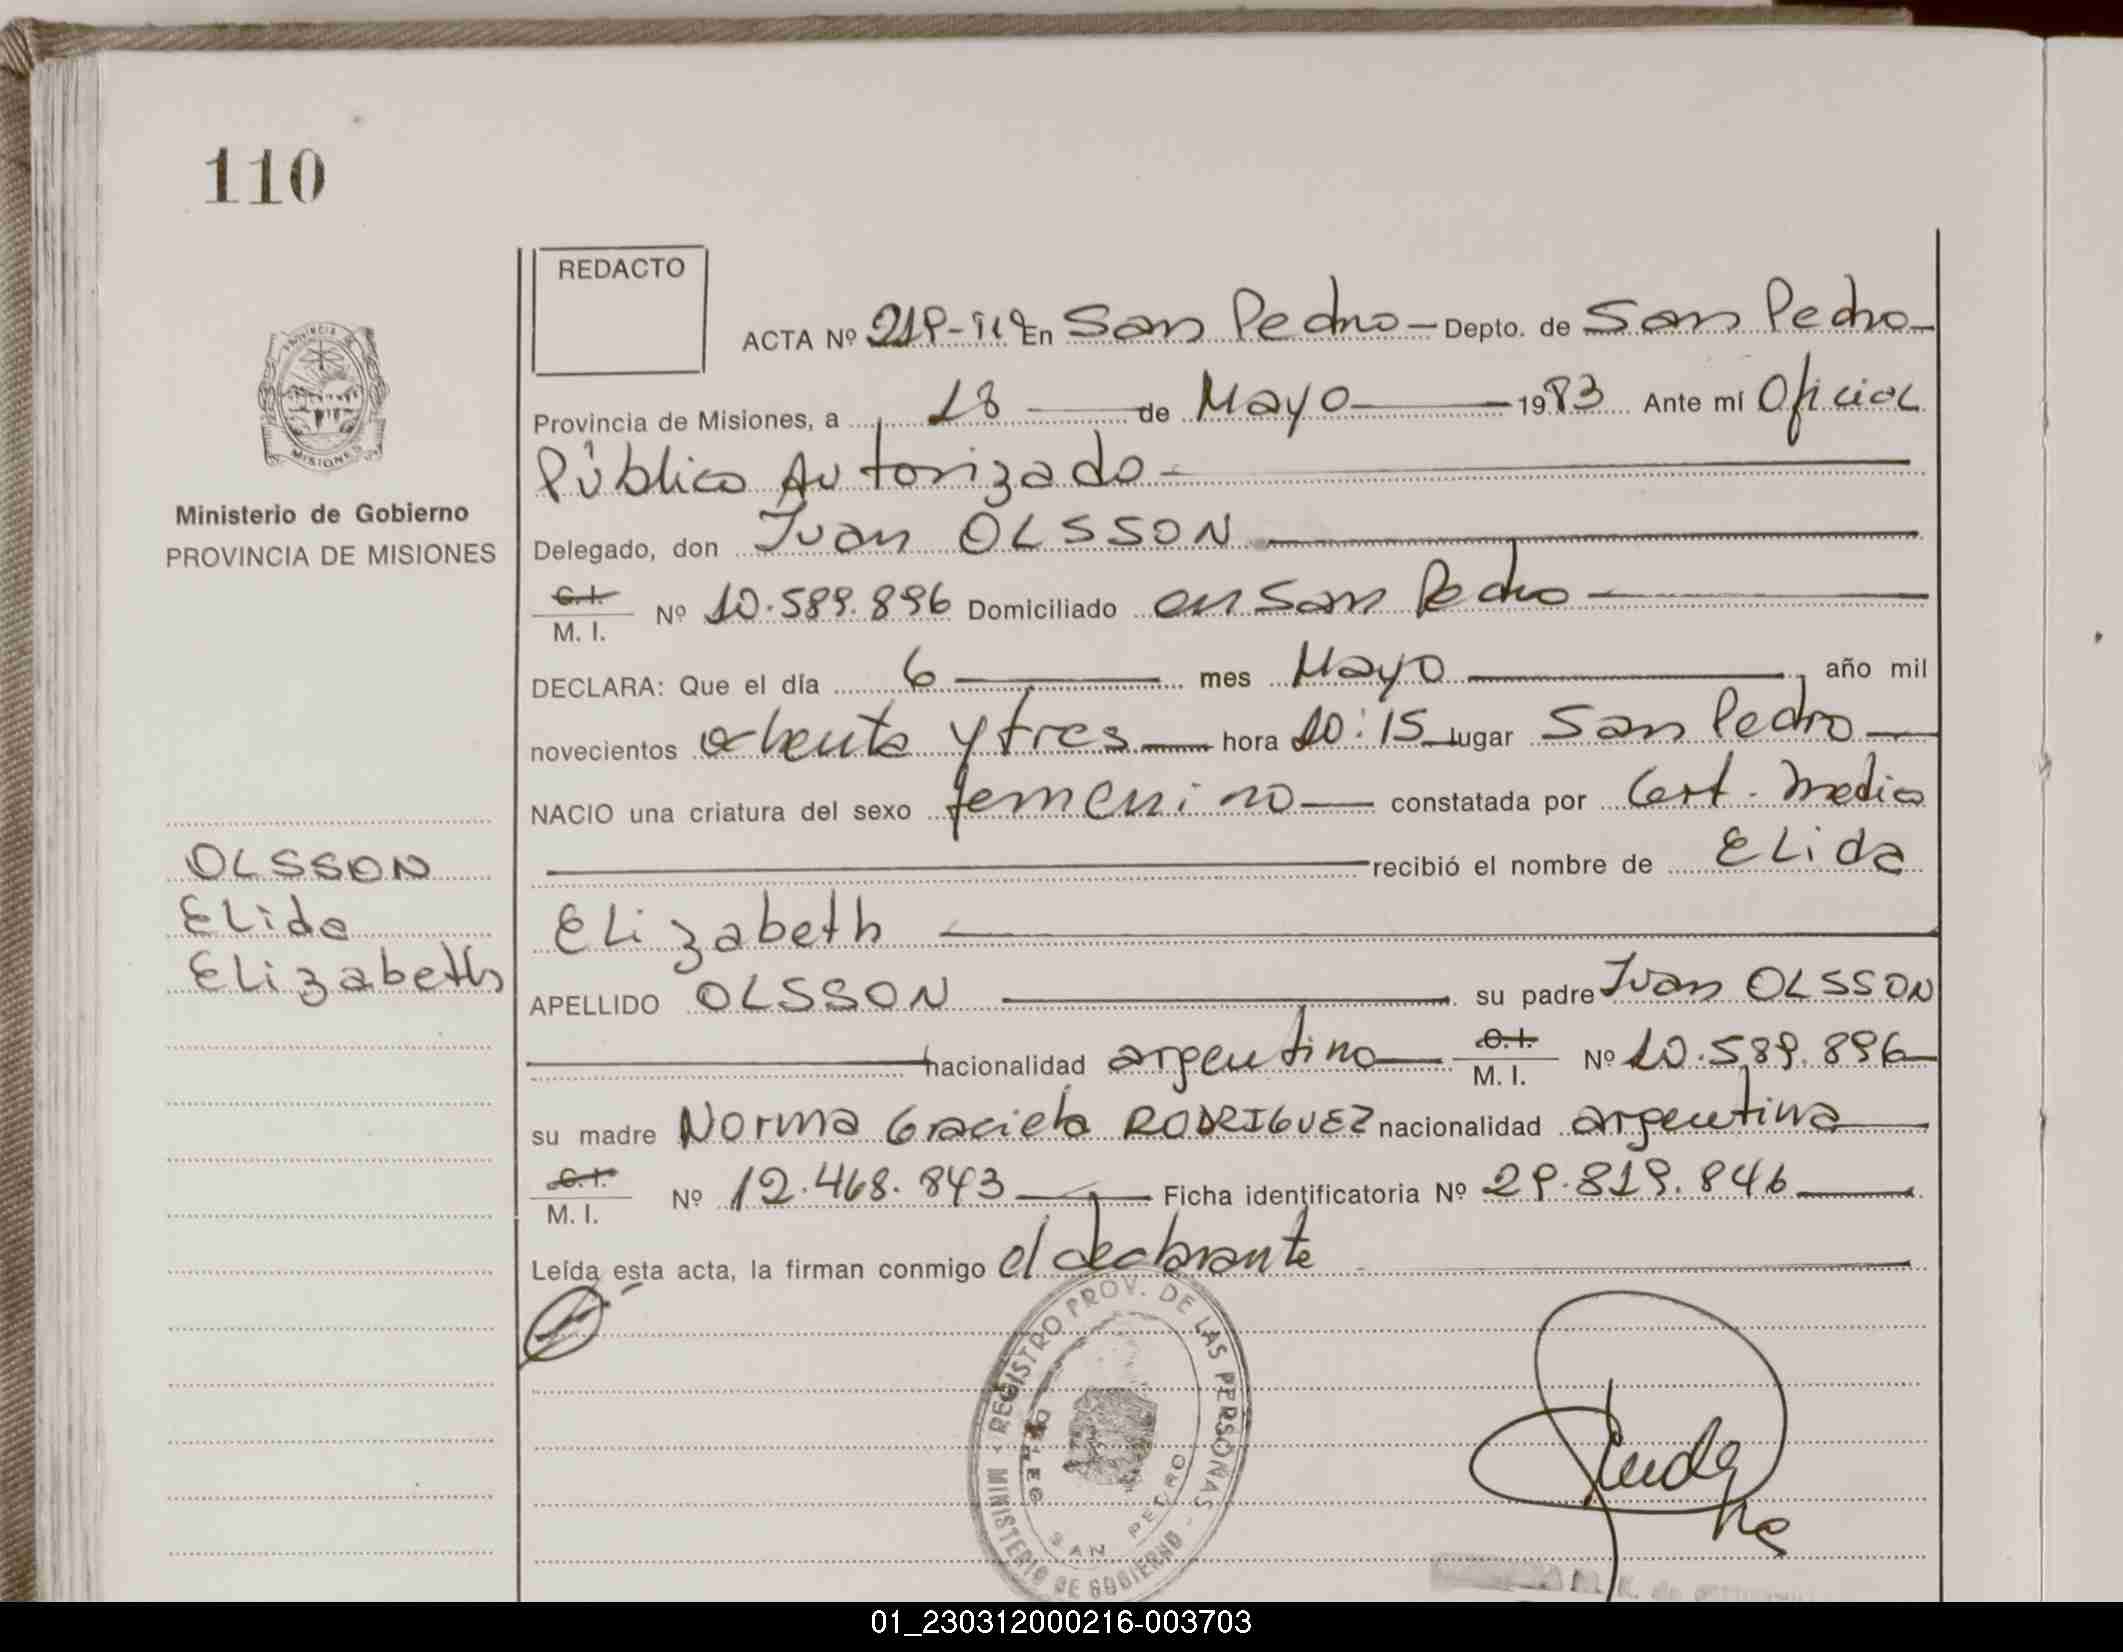 110
REDACTO
ACTA Nº 219- En San Pedro Depto. de San Pedro
Provincia de Misiones, a 18 de Mayo 1983 Ante mí Oficial
Público Autorizado
Delegado, don Ivan OLSSON
C. I. / M. I. Nº 10.589.896 Domiciliado en San Pedro
DECLARA: Que el día 6 mes Mayo año mil
novecientos ochenta y tres hora 10:15 lugar San Pedro
NACIO una criatura del sexo femenino constatada por Cert. medico
recibió el nombre de Elida
Elizabeth
APELLIDO OLSSON su padre Ivan OLSSON
nacionalidad argentino C. I. / M. I. Nº 10.589.896
su madre Norma Graciela RODRIGUEZ nacionalidad argentina
C. I. / M. I. Nº 12.468.843 Ficha identificatoria Nº 29.819.846
Leída esta acta, la firman conmigo el declarante
PROVINCIA
MISIONES
Ministerio de Gobierno
PROVINCIA DE MISIONES
OLSSON
Elida
Elizabeth
REGISTRO PROV. DE LAS PERSONAS - MINISTERIO DE GOBIERNO
SAN PEDRO
01_230312000216-003703